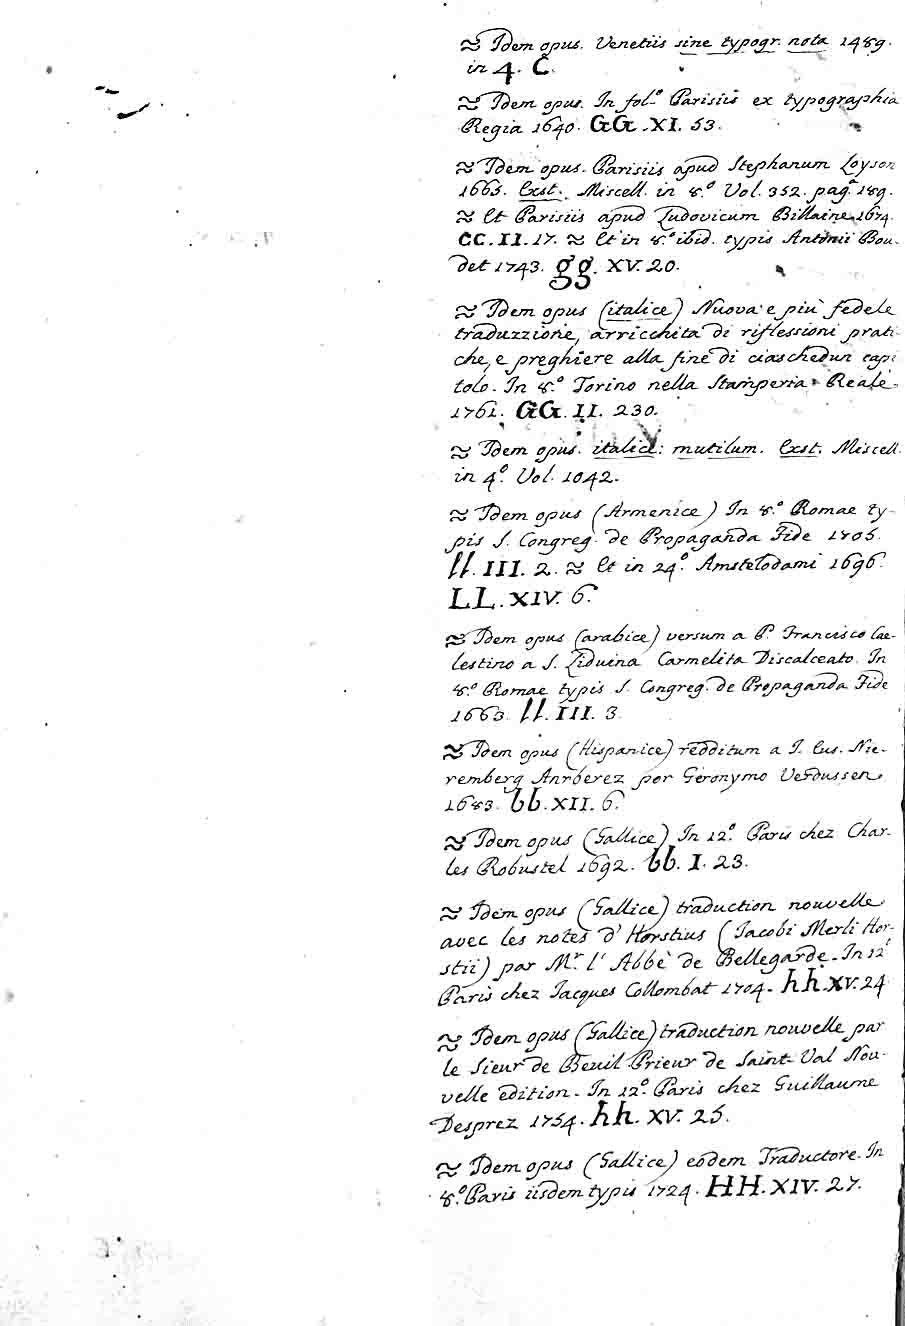 ≈ Idem opus. Venetiis sine typogr. nota 1489.
in 4. C.
≈ Idem opus. In fol.º Parisiis ex typographia
Regia 1640. GG. XI. 53.
≈ Idem opus. Parisiis apud Stephanum Loyson
1665. Exst. Miscell. in 8.º Vol. 352. pag. 189.
≈ Et Parisiis apud Ludovicum Billaine 1674.
CC. II. 17. ≈ Et in 8.º ibid. typis Antonii Bou-
det 1743. gg. XV. 20.
≈ Idem opus (italice) Nuova e più fedele
traduzzione, arricchita di riflessioni prati-
che, e preghiere alla fine di ciaschedun capi
tolo. In 8.º Torino nella Stamperia Reale
1761. GG. II. 230.
≈ Idem opus. italice: mutilum. Exst. Miscell.
in 4.º Vol. 1042.
≈ Idem opus (Armenice) In 8.º Romae ty-
pis S. Congreg. de Propaganda Fide 1705.
ll. III. 2. ≈ Et in 24.º Amstelodami 1696.
LL. XIV. 6.
≈ Idem opus (arabice) versum a P. Francisco Cae-
lestino a S. Liduina Carmelita Discalceato. In
8.º Romae typis S. Congreg. de Propaganda Fide
1663. ll. III. 3.
≈ Idem opus (Hispanice) redditum a J. Eus. Nie-
remberg Anrberez por Geronymo Verdussen
1683. bb. XII. 6.
≈ Idem opus (Gallice) In 12.º Paris chez Char-
les Robustel 1692. bb. I. 23.
≈ Idem opus (Gallice) traduction nouvelle
avec les notes d' Horstius (Jacobi Merli Hor-
stii) par M.r l' Abbè de Bellegarde. In 12.º
Paris chez Jacques Collombat 1704. hh. XV. 24
≈ Idem opus (Gallice) traduction nouvelle par
le Sieur de Beuil Prieur de Saint-Val Nou-
velle edition. In 12.º Paris chez Guillaume
Desprez 1754. hh. XV. 25.
≈ Idem opus (Gallice) eodem Traductore. In
8.º Paris iisdem typis 1724. HH. XIV. 27.